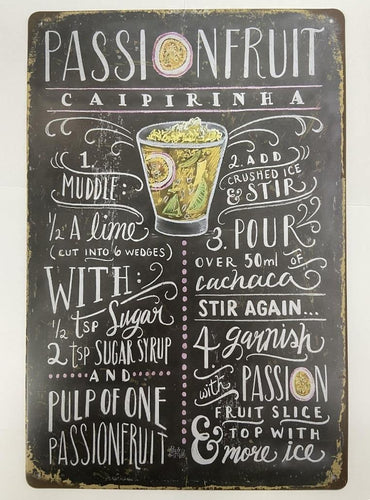 PASSIONFRUIT
CAIPIRINHA
1.
MUDDLE:
1/2 A lime
(CUT INTO 6 WEDGES)
WITH:
1/2 tsp Sugar
2 tsp SUGAR SYRUP
AND
PULP OF ONE
PASSIONFRUIT
2. ADD
CRUSHED ICE
& STIR
3. POUR
OVER 50ml OF
cachaca
STIR AGAIN...
4 garnish
with PASSION
FRUIT SLICE
& TOP WITH
more ice